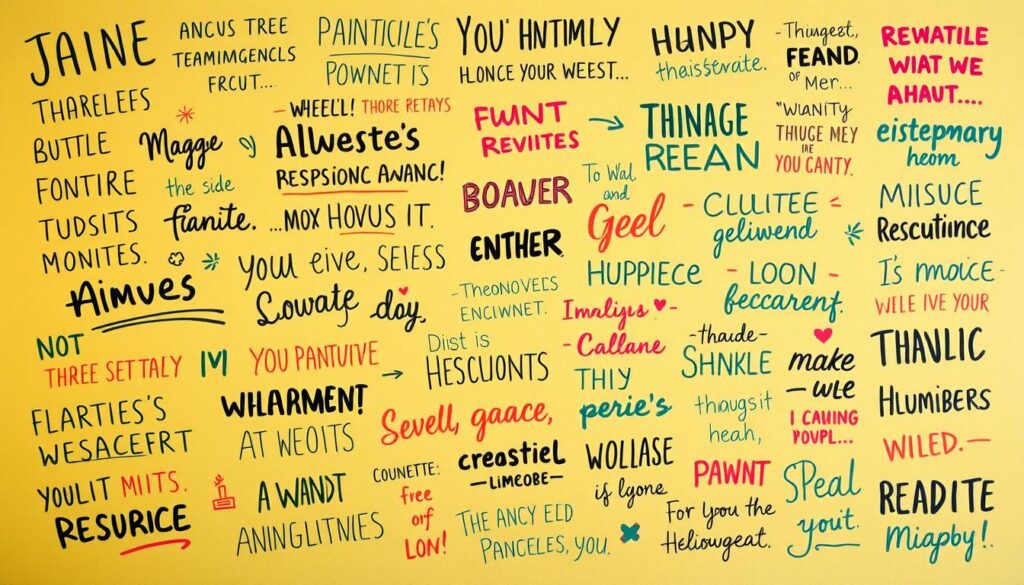 JAINE
THARELEES
BUTTLE
FONTIRE
TUDSITS
MONITES.
Aimves
NOT
THREE SETTALY
FLARTIES'S
WESACEFRT
YOULIT MIITS.
RESURICE
ANCUS TREE
TEAMIMGENCLS
FRCUT....
Magge
the side
fianite.
- WHEEL'! THORE RETAYS
Allweste's
RESPSIONC AWANC!
...MOX HOVUS IT.
YOU eive, SEIESS
Sowate day,
M
YOU PANTUIVE
WHARMENT!
AT WEOITS
A WANDT
ANINGLITNIES
PAINTICILE'S
POWNET IS
YOU' HNTIMLY
H.ONCE YOUR WEEST...
FWINT
REVIITES
BOAVER
ENTHER
-THEONOVELS
ENCIWNET.
Dist is
HESCUONTS
Sevell, gaace,
COUNETTE:
free
off
LON!
creastiel
—LIMCOBE—
THE ANCY EELD
PANCELES, YOU.
HUNPY
thaisterate.
THINAGE
REEAN
To Wal
and
Geel
- CLULITEE =
geliwend
HUPPIECE
- LOON -
feccarenf.
Imalijus
- Callane
THIY
perie's
-thaude-
SHNKLE
thaugsit
heah,
WOLLASE
if lyone
PAWNT
For you the
Heliowgeat.
-Thiugest,
FEAND.
OF Mer...
"WIANITY
THIUGE MEY
THE
YOU CANTY.
make
— WLE
I CAUING
POVPL...
SPeal
yoit.
REWATILE
WIAT WE
AHAUT....
eistepmary
heom
MIISUCE
Rescutince
I's maice-
WELE IVE YOUR
THAVLIC
HLUMIBERS
WILED.—
READITE
Miapby!.